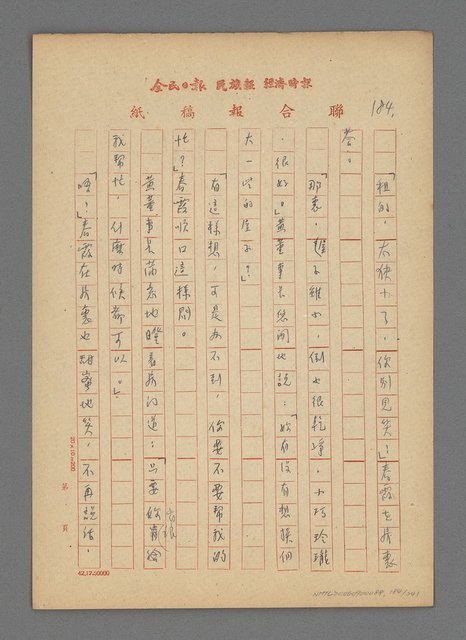 全民日報 民族報 經濟時報
聯合報稿紙
184.
「租的，太狹小了，你別見笑！」春霞在房裏
答。
「那裏，屋子雖小，倒也很乾淨，小巧玲瓏
，很好。」黃董事長悠閒地說：「妳有沒有想換個
大一些的屋子？」
「有這樣想，可是办不到，你要不要幫我的
忙？」春霞順口這樣問。
黃董事長滿意地瞪着房门道：「只要妳肯給
我帮忙，什麼時候都可以。」
「唔！」春霞在房裏也甜蜜地笑，不再說話。
20×10=200
第 頁
42.12.50000
184/241